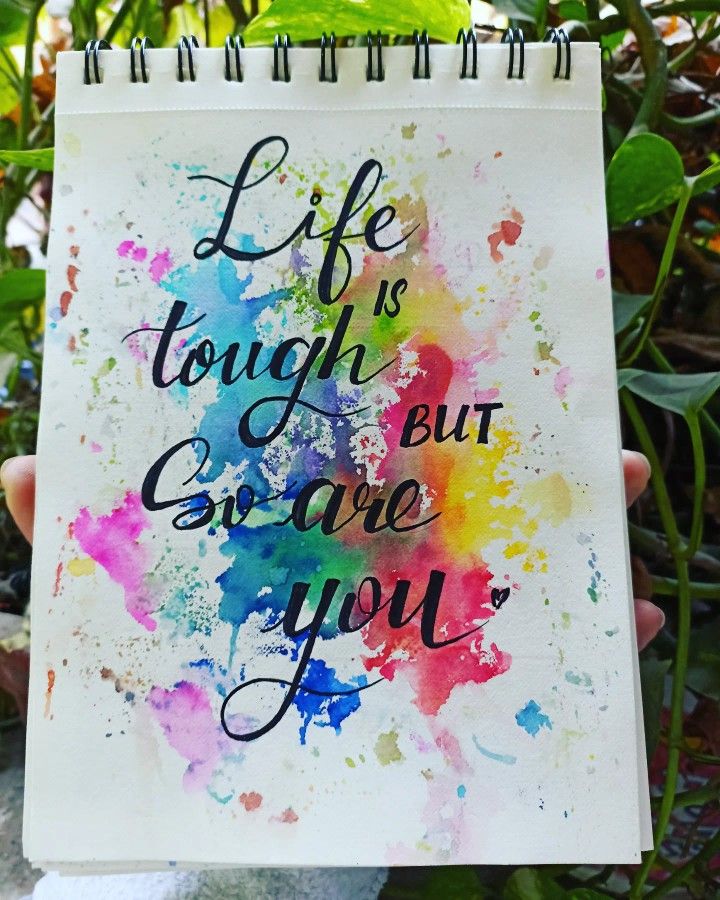 Life
IS
tough
BUT
So are
you